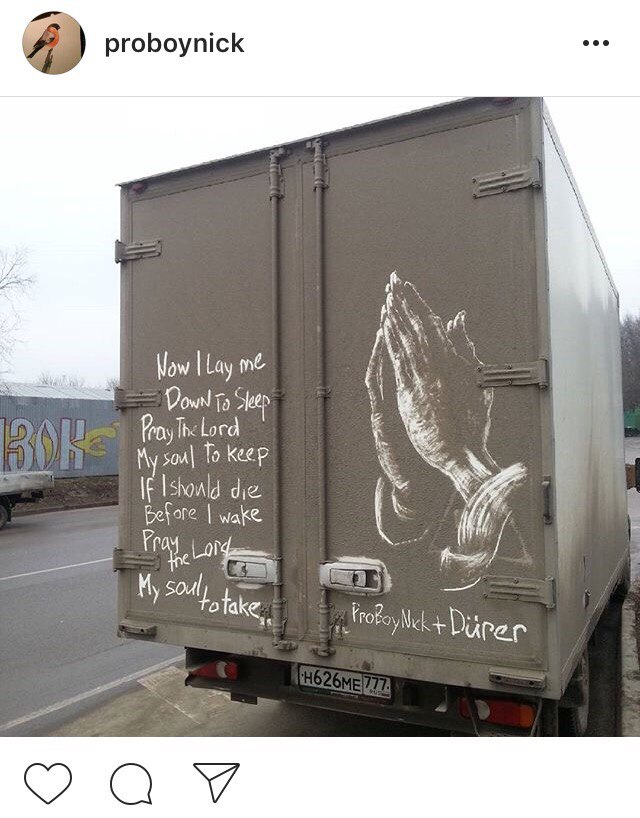 proboynick
Now I Lay me
Down To Sleep
Pray The Lord
My soul to keep
If I should die
Before I wake
Pray
the Lord
My soul
to take
ProBoyNick + Dürer
Н626МЕ 777